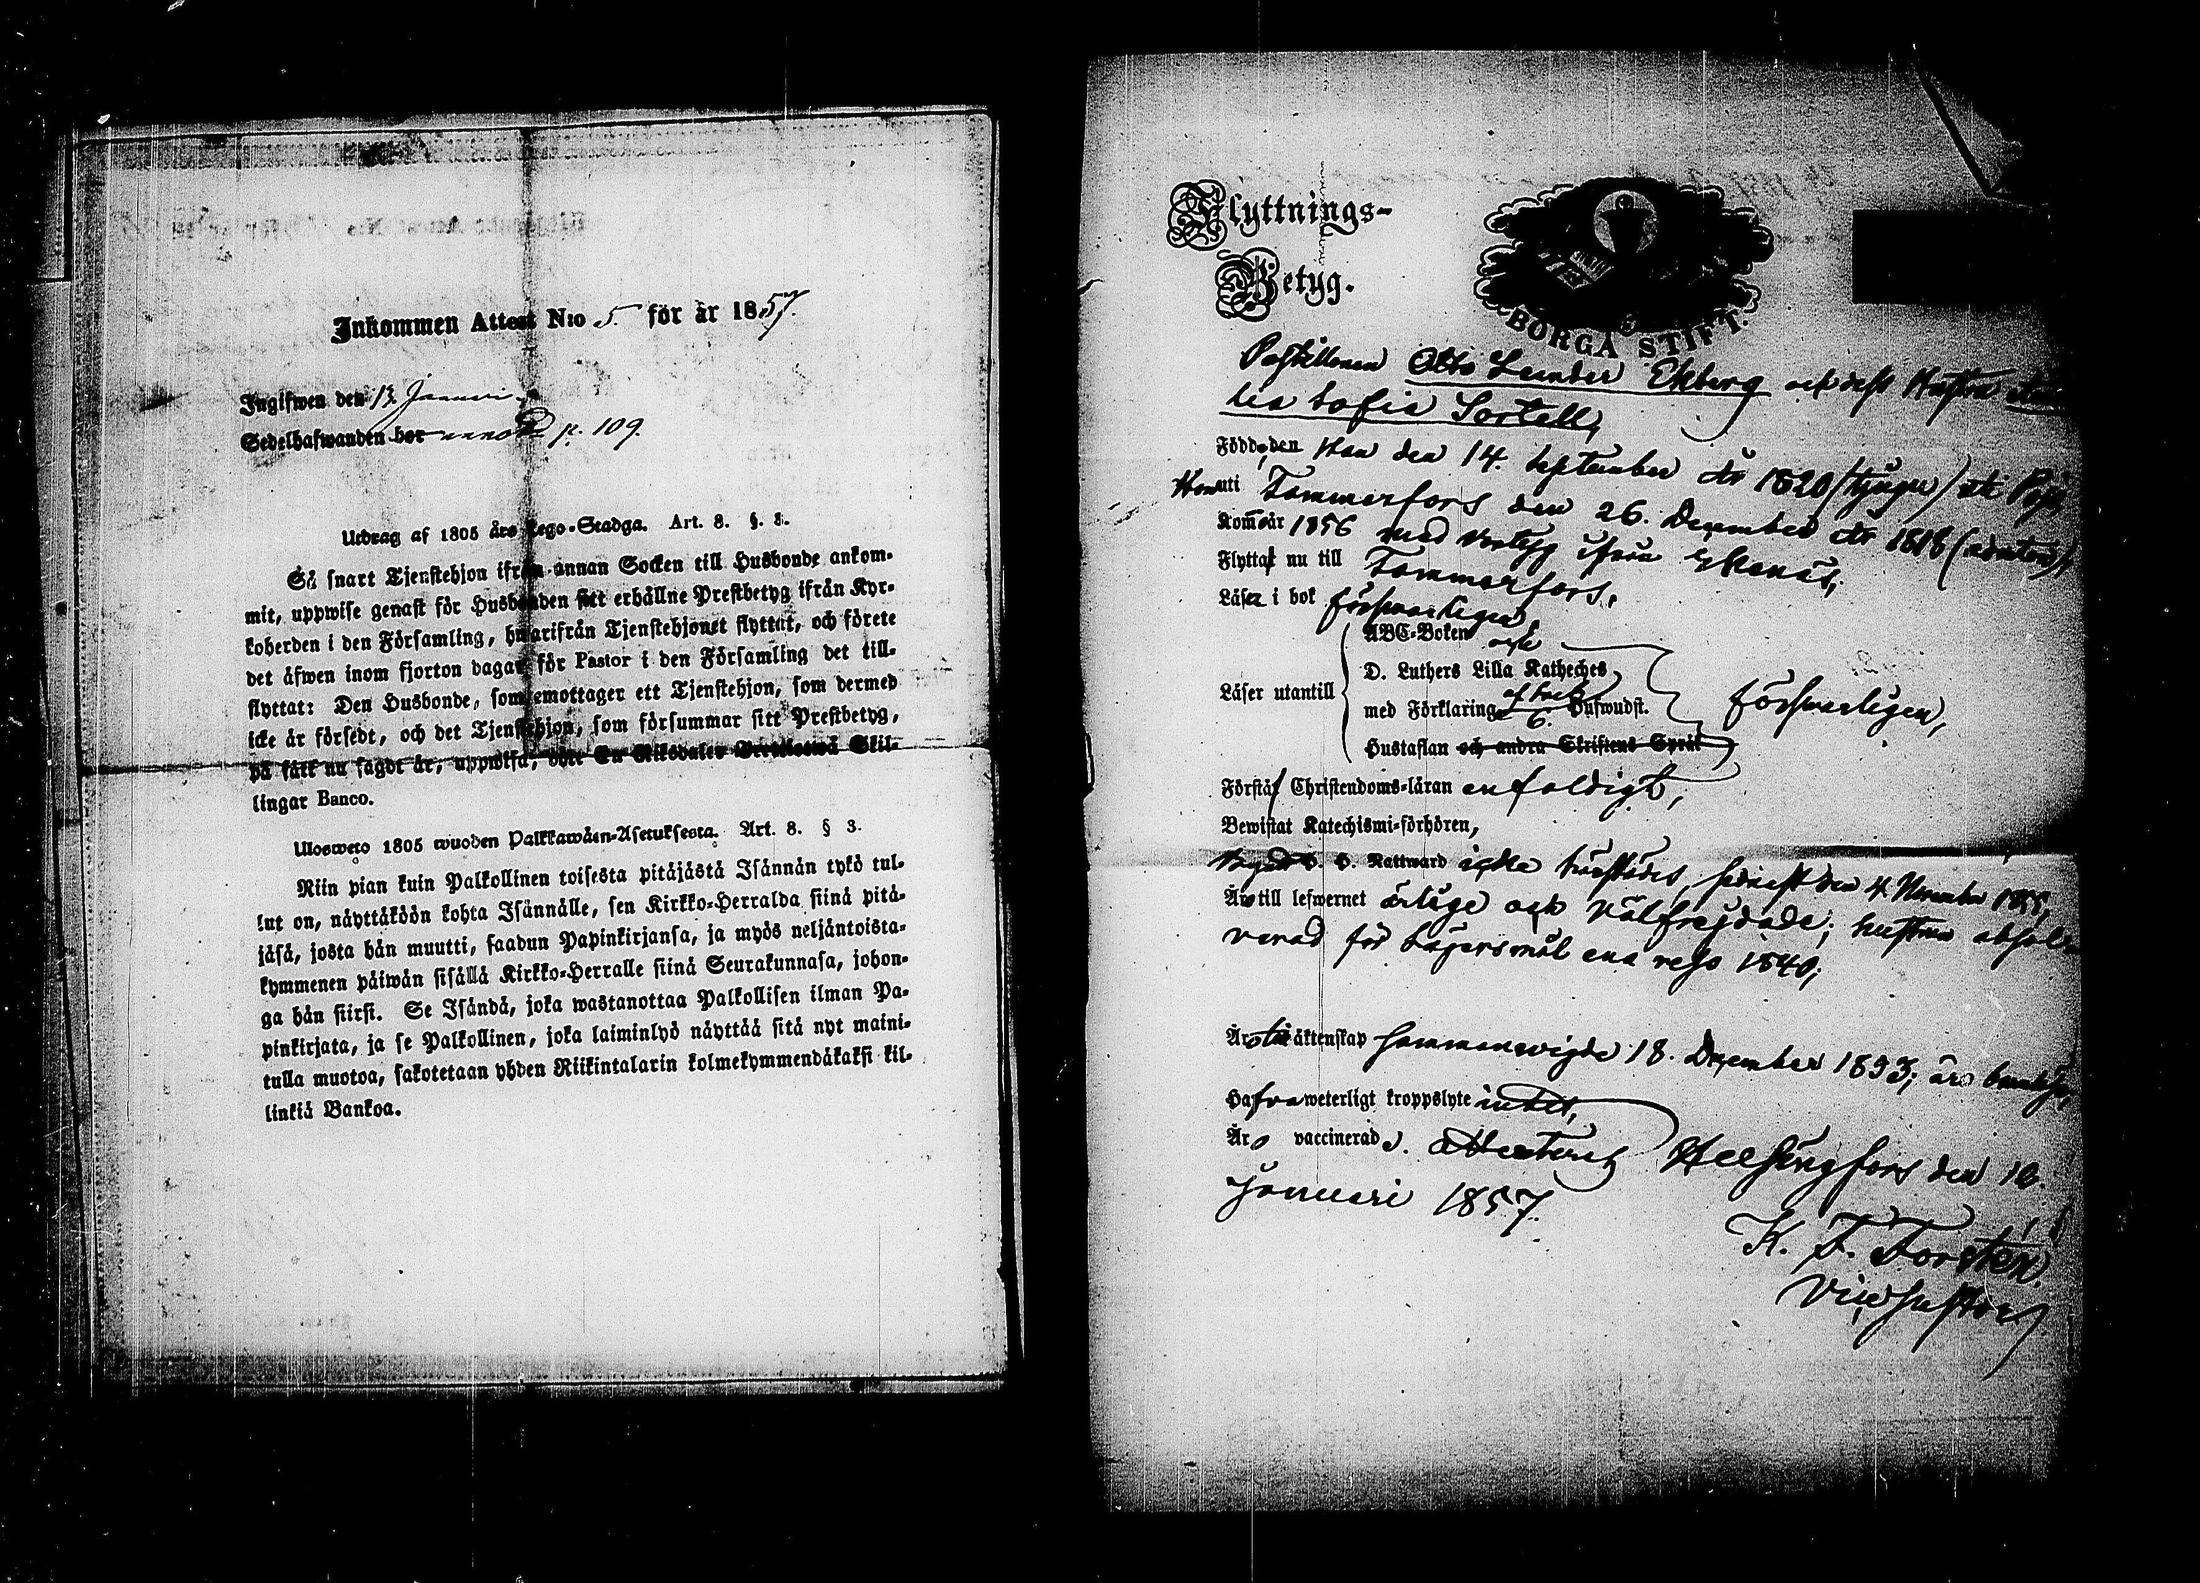 Inkommen Attest N:o 5. för år 1857.
Ingifwen den 13 Januari
Sedelhafwanden bor p. 109.
Utdrag af 1805 års Lego-Stadga. Art. 8. §. 3.
Så snart Tjenstehjon ifrån annan Socken till Husbonde ankom-
mit, uppwise genast för Husbonden sitt erhållne Prestbetyg ifrån Kyr-
koherden i den Församling, hwarifrån Tjenstehjonet flyttat, och förete
det äfwen inom fjorton dagar för Pastor i den Församling det till-
flyttat: Den Husbonde, som emottager ett Tjenstehjon, som dermed
icke är försedt, och det Tjenstehjon, som försummar sitt Prestbetyg,
på sätt nu sagdt är, uppwisa, böte En Riksdaler Trettiotwå Skil-
lingar Banco.
Ulosweto 1805 wuoden Palkkawäen-Asetuksesta. Art. 8. § 3.
Niin pian kuin Palkollinen toisesta pitäjästä Isännän tykö tul-
lut on, näyttäköön kohta Isännälle, sen Kirkko-Herralda siinä pitä-
jäsä, josta hän muutti, saadun Papinkirjansa, ja myös neljäntoista-
kymmenen päiwän sisällä Kirkko-Herralle siinä Seurakunnasa, johon-
ga hän siirsi. Se Isändä, joka wastanottaa Palkollisen ilman Pa-
pinkirjata, ja se Palkollinen, joka laiminlyö näyttää sitä nyt maini-
tulla muotoa, sakotetaan yhden Riikintalarin kolmekymmendäkaksi kil-
linkiä Bankoa.
Flyttnings-
Betyg.
BORGÅ STIFT.
Postillonen Otto Leander Ekberg och dess Hustru
lia Sofia Sortell,
Födde, den Han den 14. September år 1820 (tjugu)
Hon uti Tammerfors den 26. December år 1818 (aderton)
Kom år 1856 med betyg ifrån Ekenäs;
Flytta nu till Tammerfors.
Läser i bok försvarligen
ABC-Boken och
D. Luthers Lilla Katheches
med Förklaring 6. Hufwudst.
Läser utantill försvarligen,
Hustaflan och andra Skriftens Språk
Förstå Christendoms-läran enfaldigt,
Bewistat Katechismi-förhören,
H. H. Nattward icke härstädes, senast den 4. November 1855,
Äro till lefwernet ärlige och välfrejdade; hustrun absol
verad för lägersmål ena resa 1840;
Äro till äktenskap sammanvigde 18. December 1853; äro
Hafva weterligt kroppslyte intet,
Äro vaccinerade. Attesteras Helsingfors den 10.
Januari 1857.
K. F. Forstén.
Vicepastor